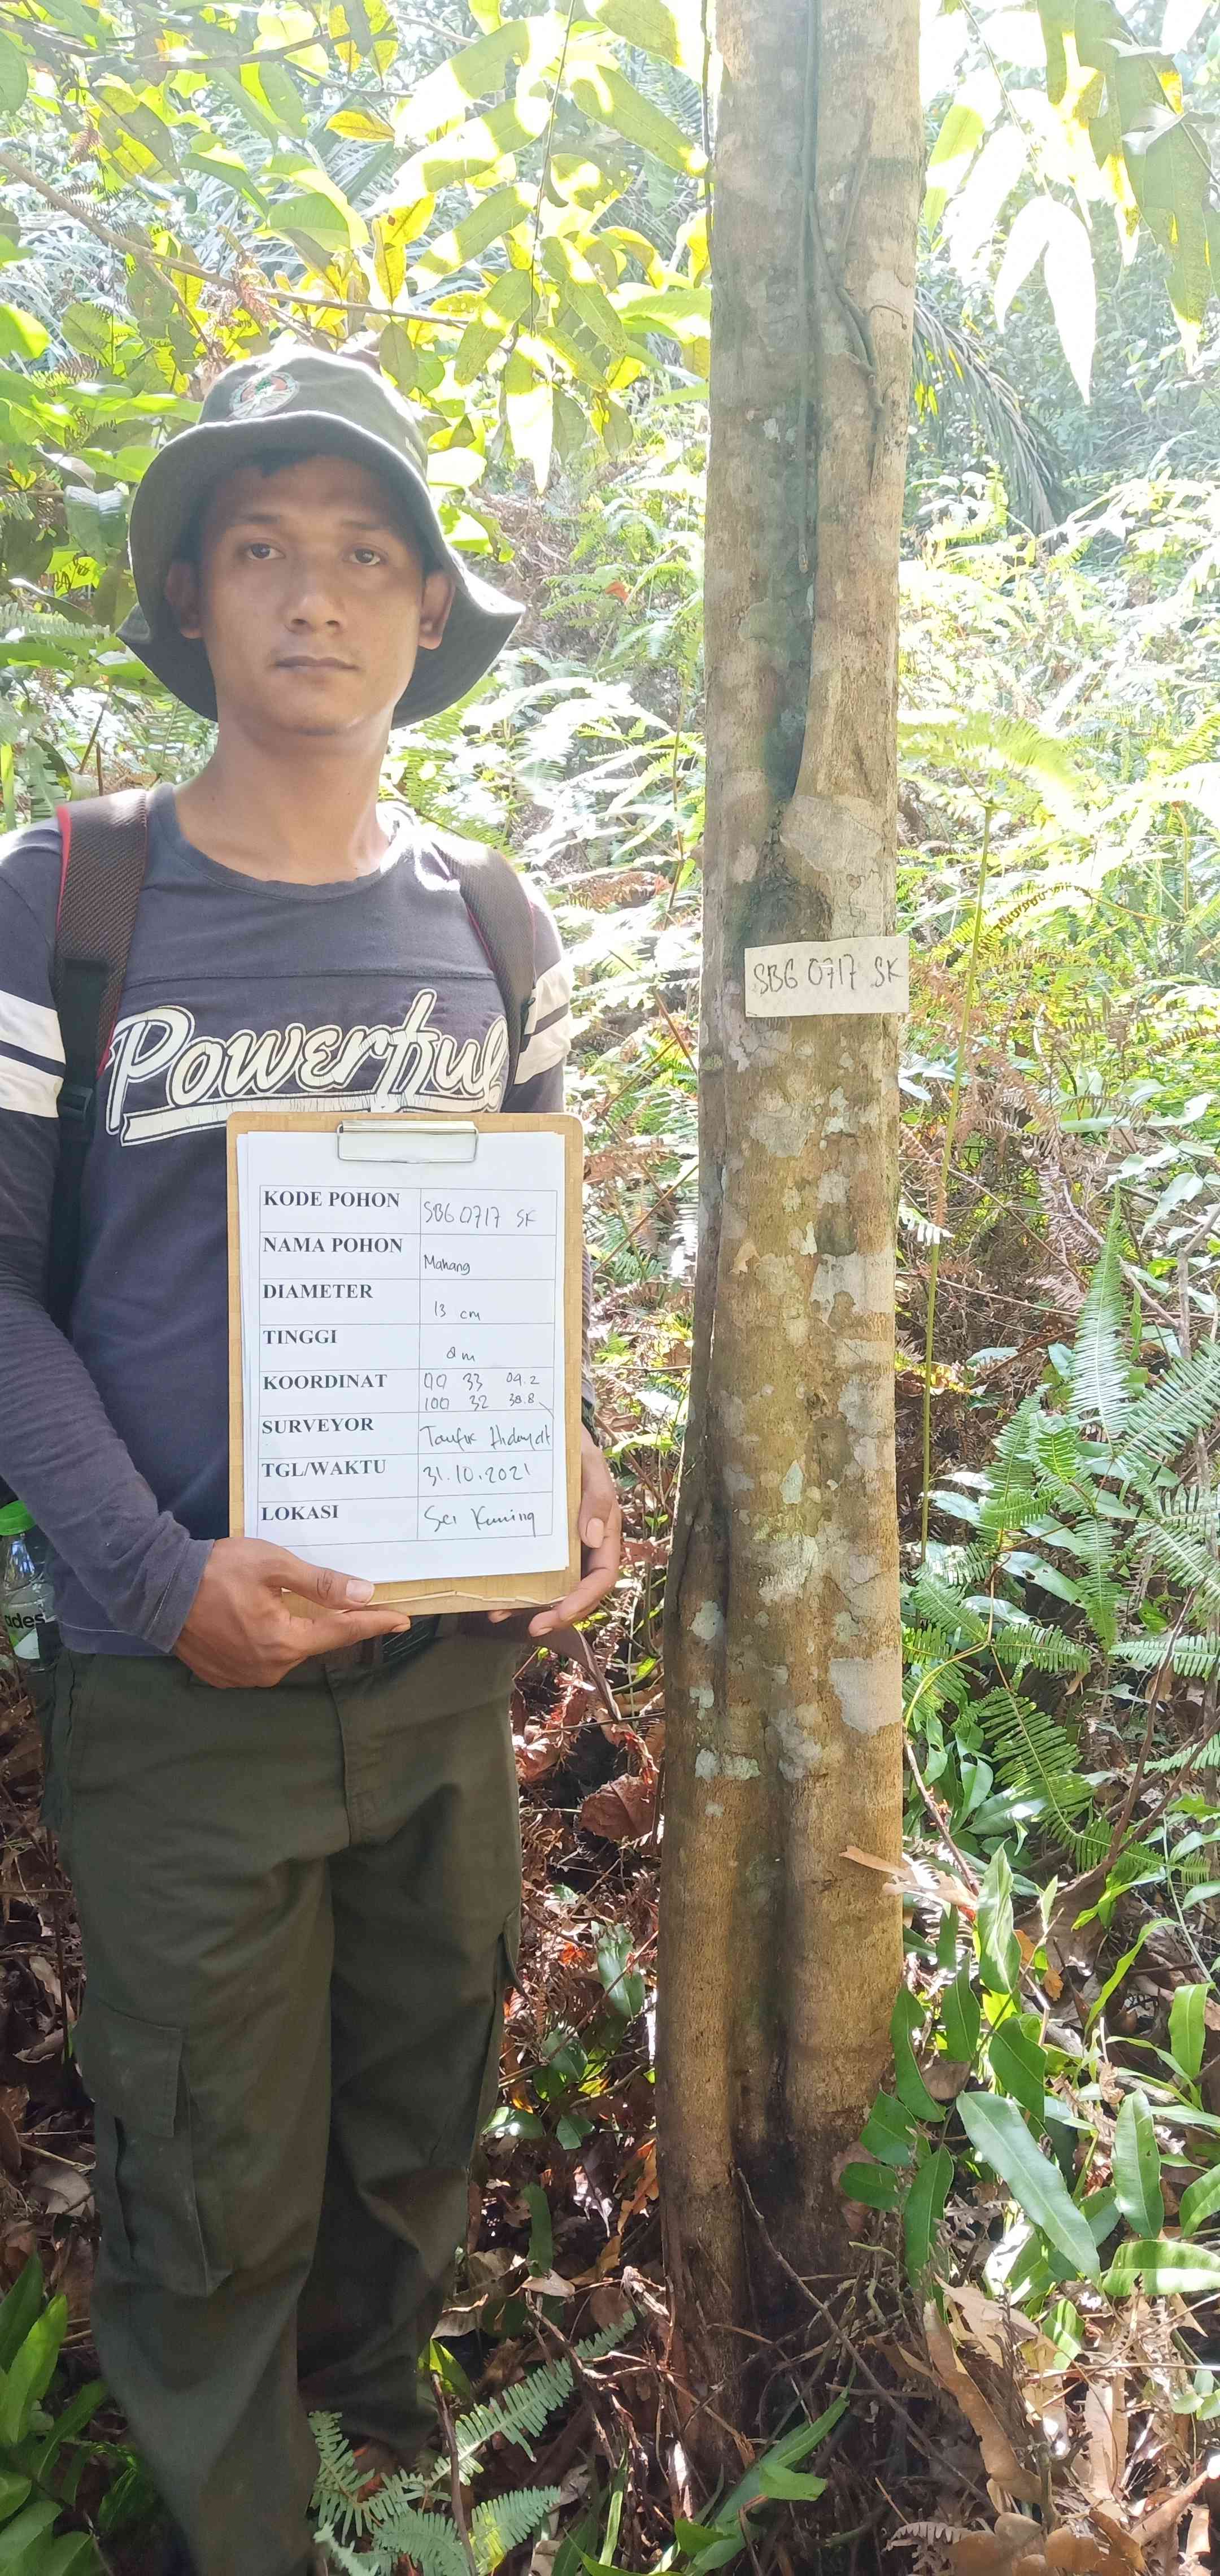 SBG 0717 SK
Powerful
KODE POHON SBG 0717 SK
NAMA POHON Mahang
DIAMETER 13 cm
TINGGI 8 m
KOORDINAT 00 33 09.2
100 32 38.8
SURVEYOR Taufik Hidayat
TGL/WAKTU 31.10.2021
LOKASI Sei Kuning
ades